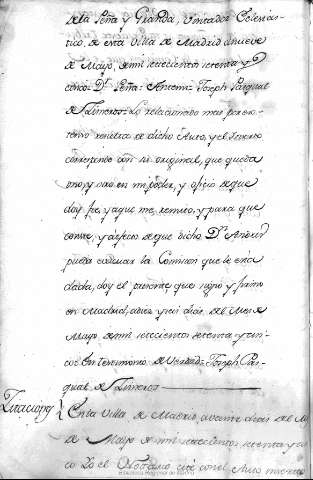 de la Peña y Granda, Visitador Eclesias-
tico, de esta Villa de Madrid a nueve
de Mayo, de mil setecientos setenta y
cinco. Dr. Peña. Antemi. Joseph Pasqual
de Zisneros. Lo relacionado mas por es-
tenso resulta de dicho Auto, y el Inserto
corresponde con su original, que queda
uno, y otro en mi poder, y oficio de que
doy fee, y a que me remito, y para que
conste, y a efecto de que dicho Dn. Andres
pueda evacuar la Comision que le está
dada, doy el presente que signo y firmo
en Madrid, a diez y seis dias del Mes de
Mayo, de mil setecientos setenta y cin-
co. En testimonio de Verdad. Joseph Pas-
qual de Zisneros
En la Villa de Madrid, a veinte dias del M
de Mayo de mil setecientos setenta y
co Yo el Notario, con el Auto
Biblioteca Regional de Madrid